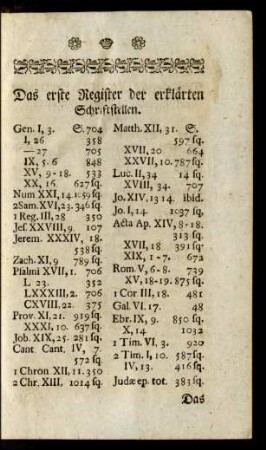 Das erste Register der erklärten
Schriftstellen.
Gen. I, 3. S. 704
I, 26 358
—27 705
IX, 5. 6 848
XV, 9-18. 533
XX, 16 627 sq.
Num XXI, 14. 159 sq.
2Sam. XVI, 23. 346 sq
1 Reg. III, 28 350
Jes. XXVIII, 9. 107
Jerem. XXXIV, 18.
538 sq.
Zach. XI, 9 789 sq.
Psalmi XVII, 1. 706
L 23. 352
LXXXIII, 2. 706
CXVIII, 22. 375
Prov. XI, 21. 919 sq.
XXXI, 10. 637 sq.
Job. XIX, 25. 281 sq.
Cant Cant. IV, 7.
572 sq.
1 Chron XII, 11. 350
2 Chr. XIII. 1014 sq.
Matth. XII, 31. S.
597 sq.
XVII, 20 664
XXVII, 10. 787 sq.
Luc. II, 34 14 sq.
XVIII, 34. 707
Jo. XIV, 13 14. ibid.
Jo. I, 14. 1037 sq.
Acta Ap. XIV, 8-18.
313 sq.
XVII, 18 391 sq.
XIX, 1-7. 672
Rom. V, 6-8. 739
XV, 18-19. 875 sq.
1 Cor III, 18. 481
Gal. VI. 17. 48
Ebr. IX, 9. 850 sq.
X, 14 1032
1 Tim. VI, 3. 920
2 Tim. I, 10. 587 sq.
IV, 13. 416 sq.
Judæ ep. tot. 383 sq.
Das